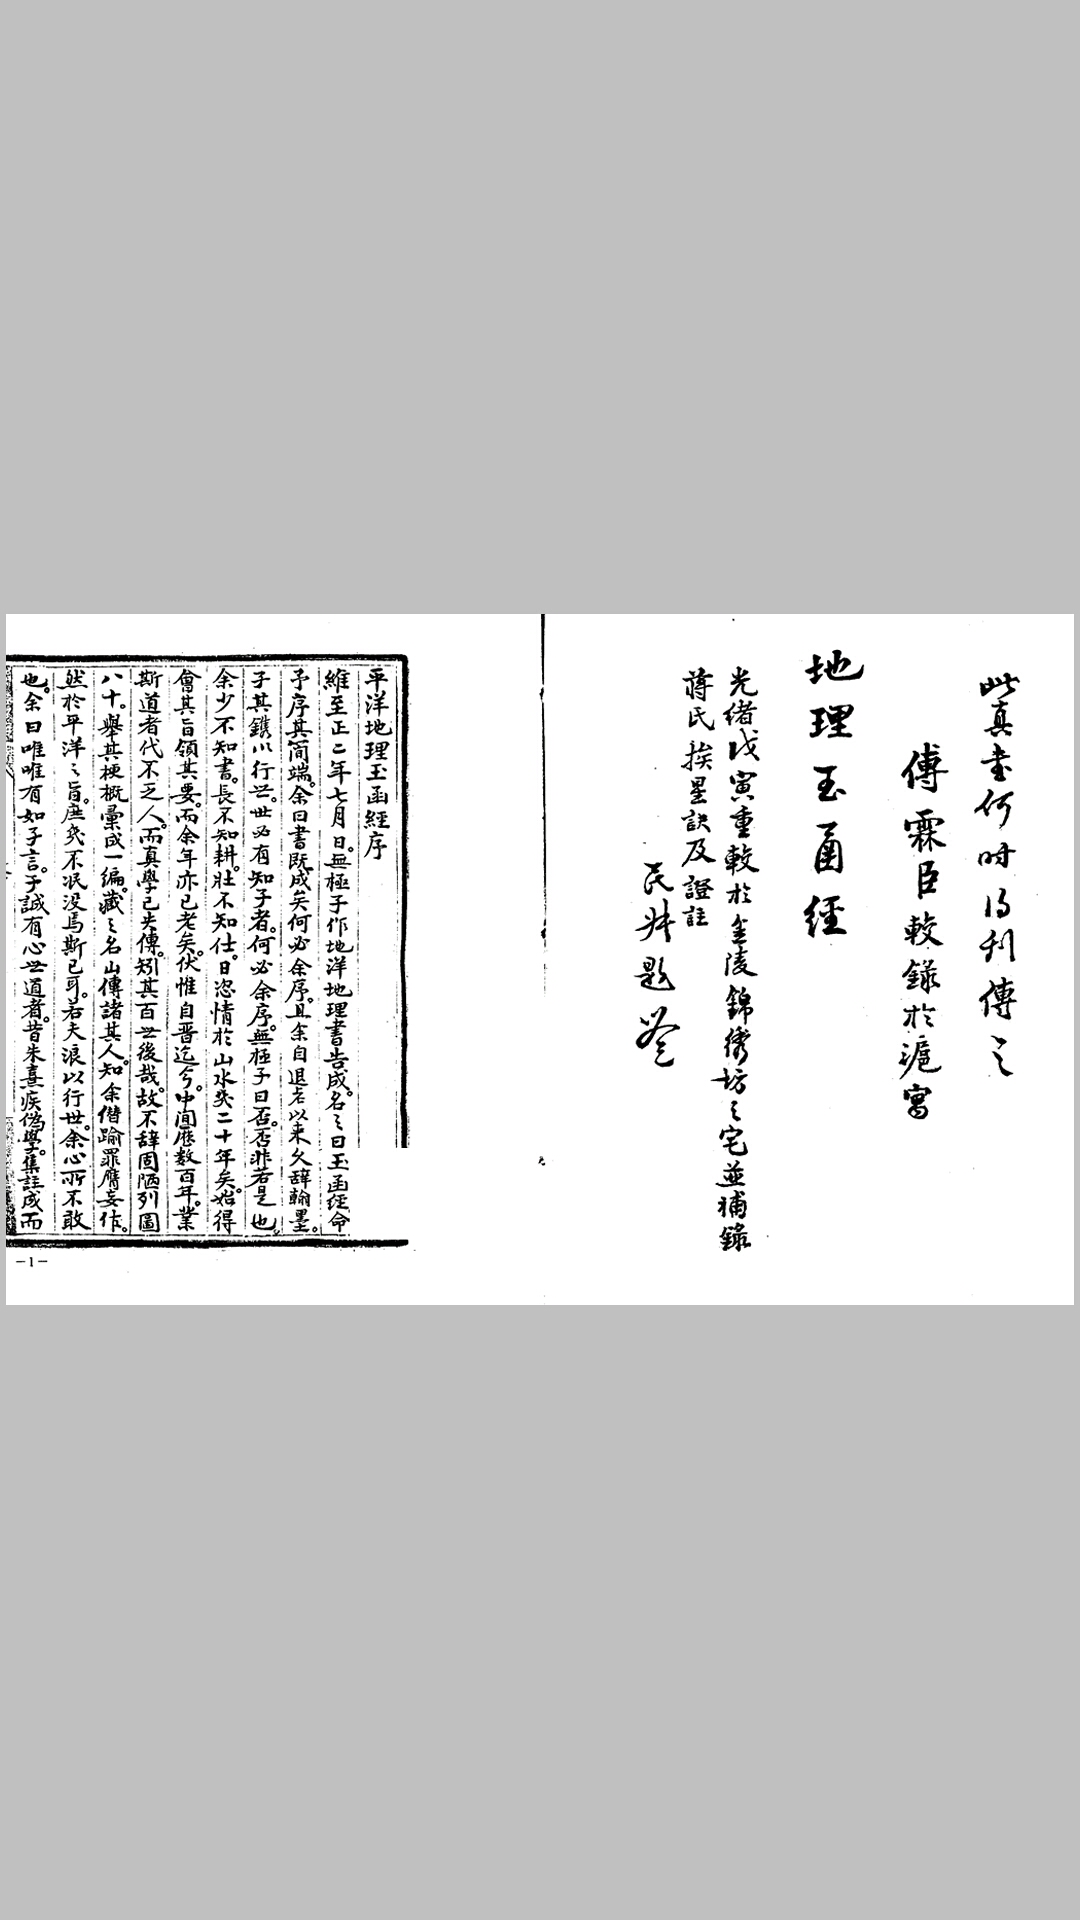 此真書何時得刊傳之
傅霖臣較錄於滬寓
地理玉函經
光緒戊寅重較於金陵錦繡坊之宅並補錄
蔣氏挨星訣及證註
民
題簽
平洋地理玉函經序
維至正二年七月日。無極子作地洋地理書告成。名之曰玉函經命
予序其簡端。余曰書既成矣何必余序。且余自退老以來久辞翰墨。
子其鐫以行世。世必有知子者。何必余序。無極子曰否。否非若是也。
余少不知書。長不知耕。壯不知仕。日恣情於山水癸二十年矣。始得
會其旨領其要。而余年亦已老矣。伏惟自晋迄今。中间歷數百年。業
斯道者代不乏人。而真學已失傳。矧其百世後哉。故不辞固陋列圖
八十。舉其梗概彙成一編。藏之名山傳諸其人。知余僭踰罪膺妄作。
然於平洋之旨。庶癸不泯没焉斯已可。若夫浪以行世。余心所不敢
也。余曰唯唯有如子言。子誠有心世道者。昔朱熹疾偽學。集註成而
－1－